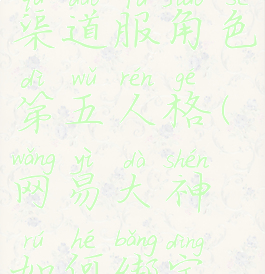 qú dào fú jiǎo sè
渠道服角色
dì wǔ rén gé
第五人格(
wǎng yì dà shén
网易大神
rú hé bǎng dìng
如何绑定